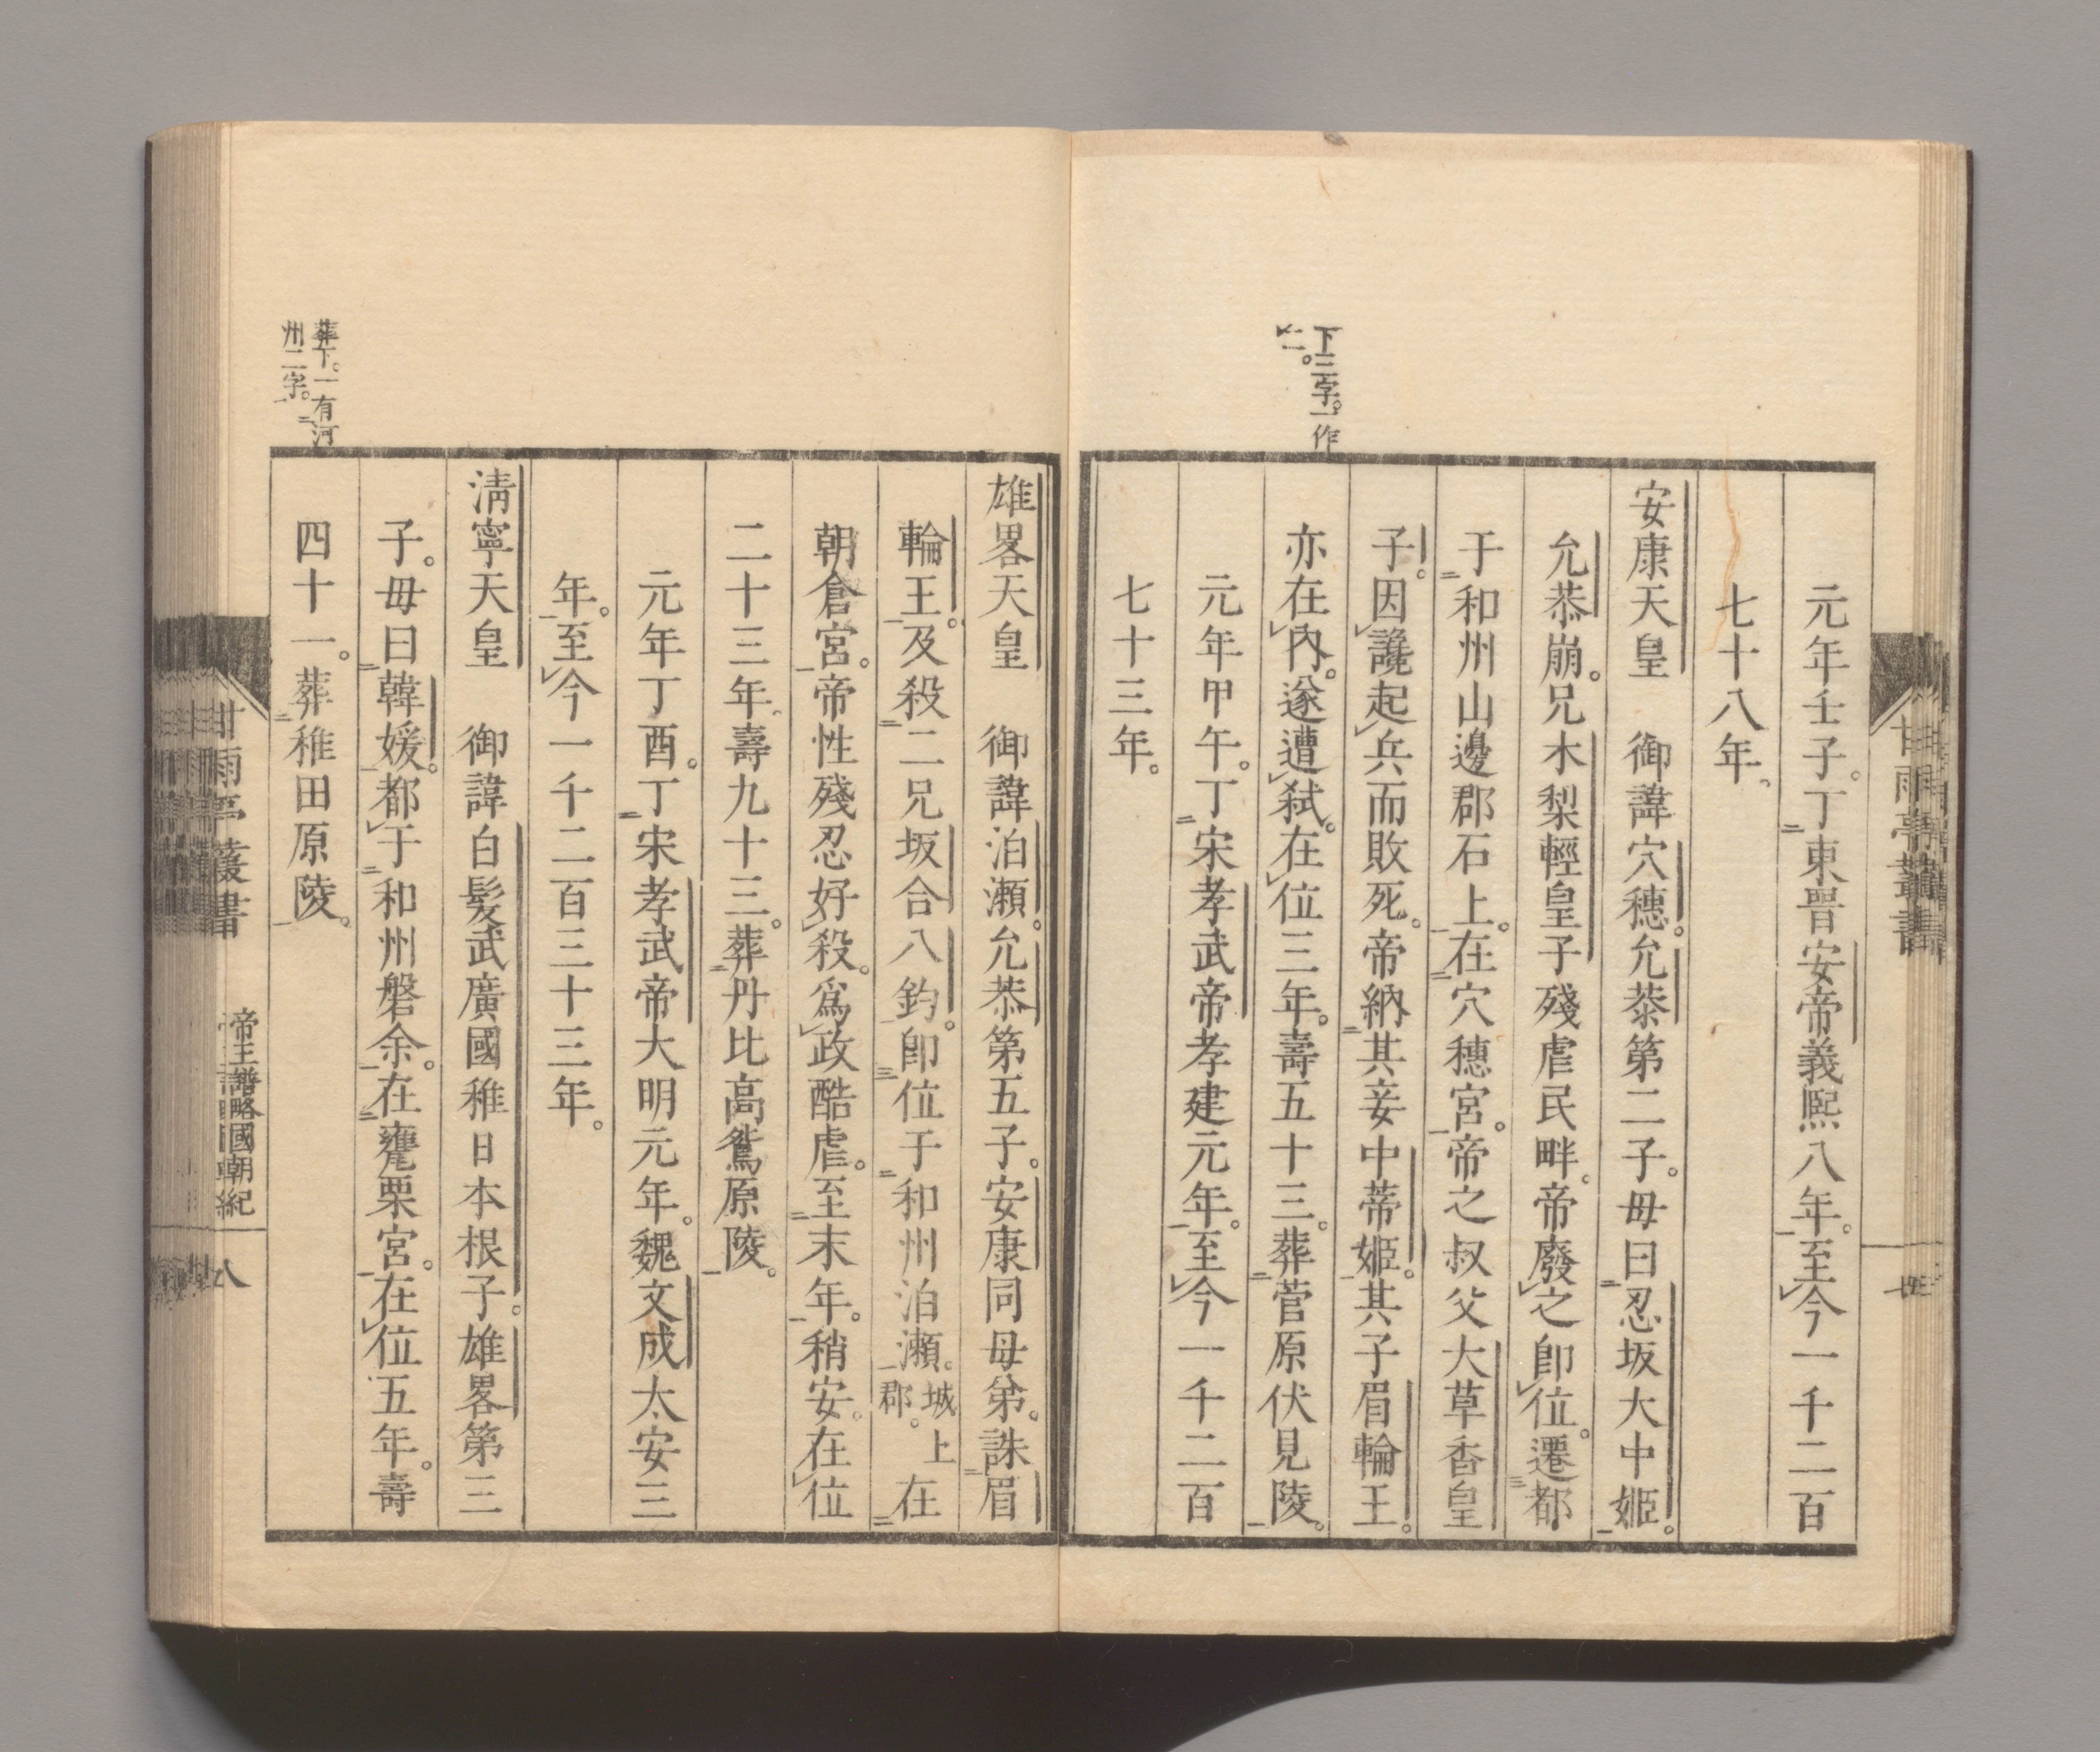 下三字。一作
元年壬子。丁東晋安帝義熙八年。至今一千二百
七十八年。
安康天皇　御諱穴穗。允㳟第二子。母曰忍坂大中姬。
允㳟崩。兄木梨輕皇子殘虐民畔。帝廢之卽位。遷都
于和州山邊郡石上。在穴穗宮。帝之叔父大草香皇
子。因讒起兵而敗死。帝納其妾中蒂姬。其子眉輪王。
亦在內。遂遭弒。在位三年。壽五十三。葬菅原伏見陵。
元年甲午。丁宋孝武帝孝建元年。至今一千二百
七十三年。
葬下。一有河
州二字。
雄畧天皇　御諱泊瀨。允㳟第五子。安康同母弟。誅眉
輪王。及殺二兄坂合八釣。卽位于和州泊瀨。城上郡。在
朝倉宮。帝性殘忍好殺。爲政酷虐。至末年。稍安。在位
二十三年。壽九十三。葬丹比高鷲原陵。
元年丁酉。丁宋孝武帝大明元年。魏文成太安三
年。至今一千二百三十三年。
淸寧天皇　御諱白髮武廣國稚日本根子。雄畧第三
子。母曰韓媛。都于和州磐余。在甕栗宮。在位五年。壽
四十一。葬稚田原陵。
甘雨亭叢書　帝王譜略國朝紀　八